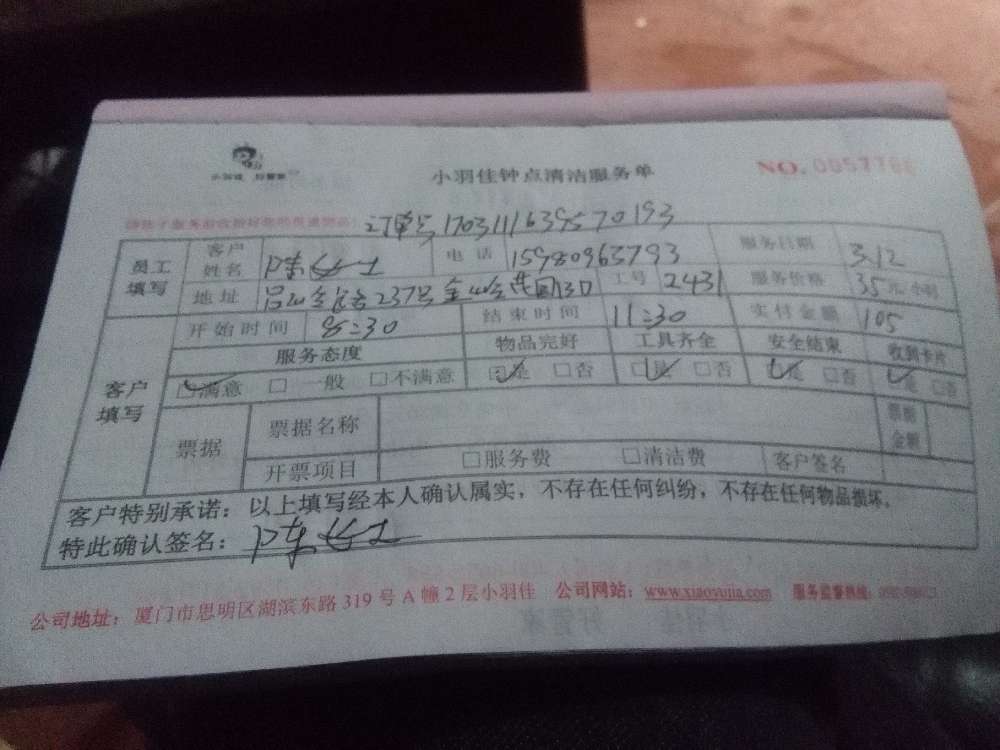 小羽佳 好管家
小羽佳钟点清洁服务单
NO. 0057766
订单号 1703111639570193
员工填写 客户姓名 陈 电话 15980963793 服务日期 3.12
地址 237号 工号 2431 服务价格 35元/小时
客户填写 开始时间 8:30 结束时间 11:30 实付金额 105
服务态度 物品完好 工具齐全 安全结束 收到卡片
☑满意 □一般 □不满意 ☑是 □否 ☑是 □否 ☑是 □否 ☑是 □否
票据 票据名称 票据金额
开票项目 □服务费 □清洁费 客户签名
客户特别承诺：以上填写经本人确认属实，不存在任何纠纷，不存在任何物品损坏。
特此确认签名：陈
公司地址：厦门市思明区湖滨东路 319 号 A 幢 2 层小羽佳 公司网站：www.xiaoyujia.com 服务监督热线：